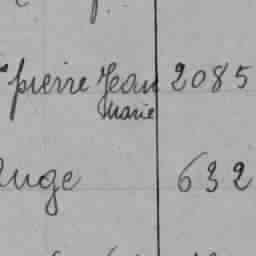 pierre Jean 2085
Marie
uge 632